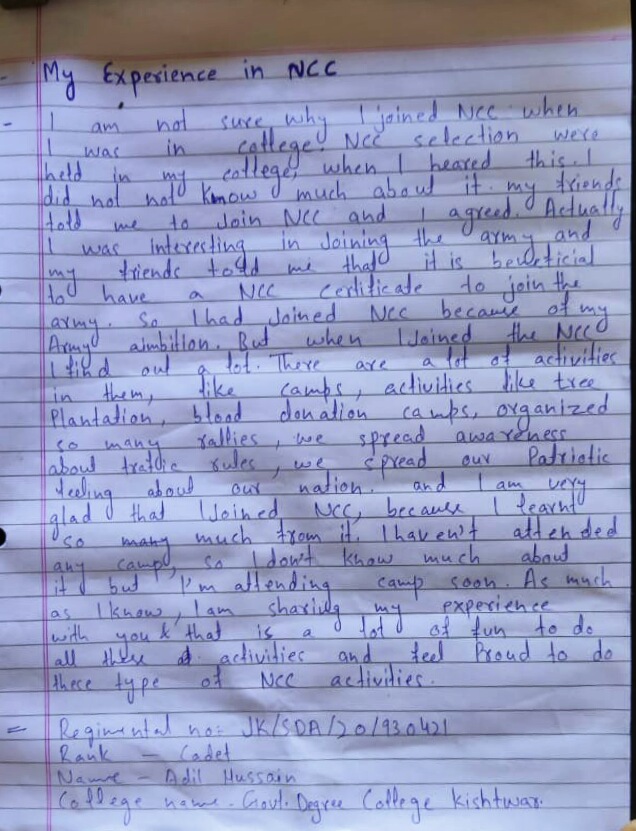 My Experience in NCC
I am not sure why I joined NCC when
I was in college. NCC selection were
held in my college, when I heared this. I
did not not know much about it. my friends
told me to Join NCC and I agreed. Actually
I was interesting in Joining the army and
my friends told me that it is beneficial
to have a NCC certificate to join the
army. So I had Joined NCC because of my
Army aimbition. But when I Joined the NCC
I find out a lot. There are a lot of activities
in them, like camps, activities like tree
Plantation, blood donation camps, organized
so many rallies, we spread awareness
about traffic rules, we spread our Patriotic
feeling about our nation. and I am very
glad that I Joined NCC, because I learnt
so many much from it. I haven't attended
any camp, so I don't know much about
it but I'm attending camp soon. As much
as I know, I am sharing my experience
with you & that is a lot of fun to do
all these activities and feel Proud to do
these type of NCC activities.
= Regimental no: JK/SDA/20/930421
Rank - Cadet
Name - Adil Hussain
College name - Govt. Degree College Kishtwar.